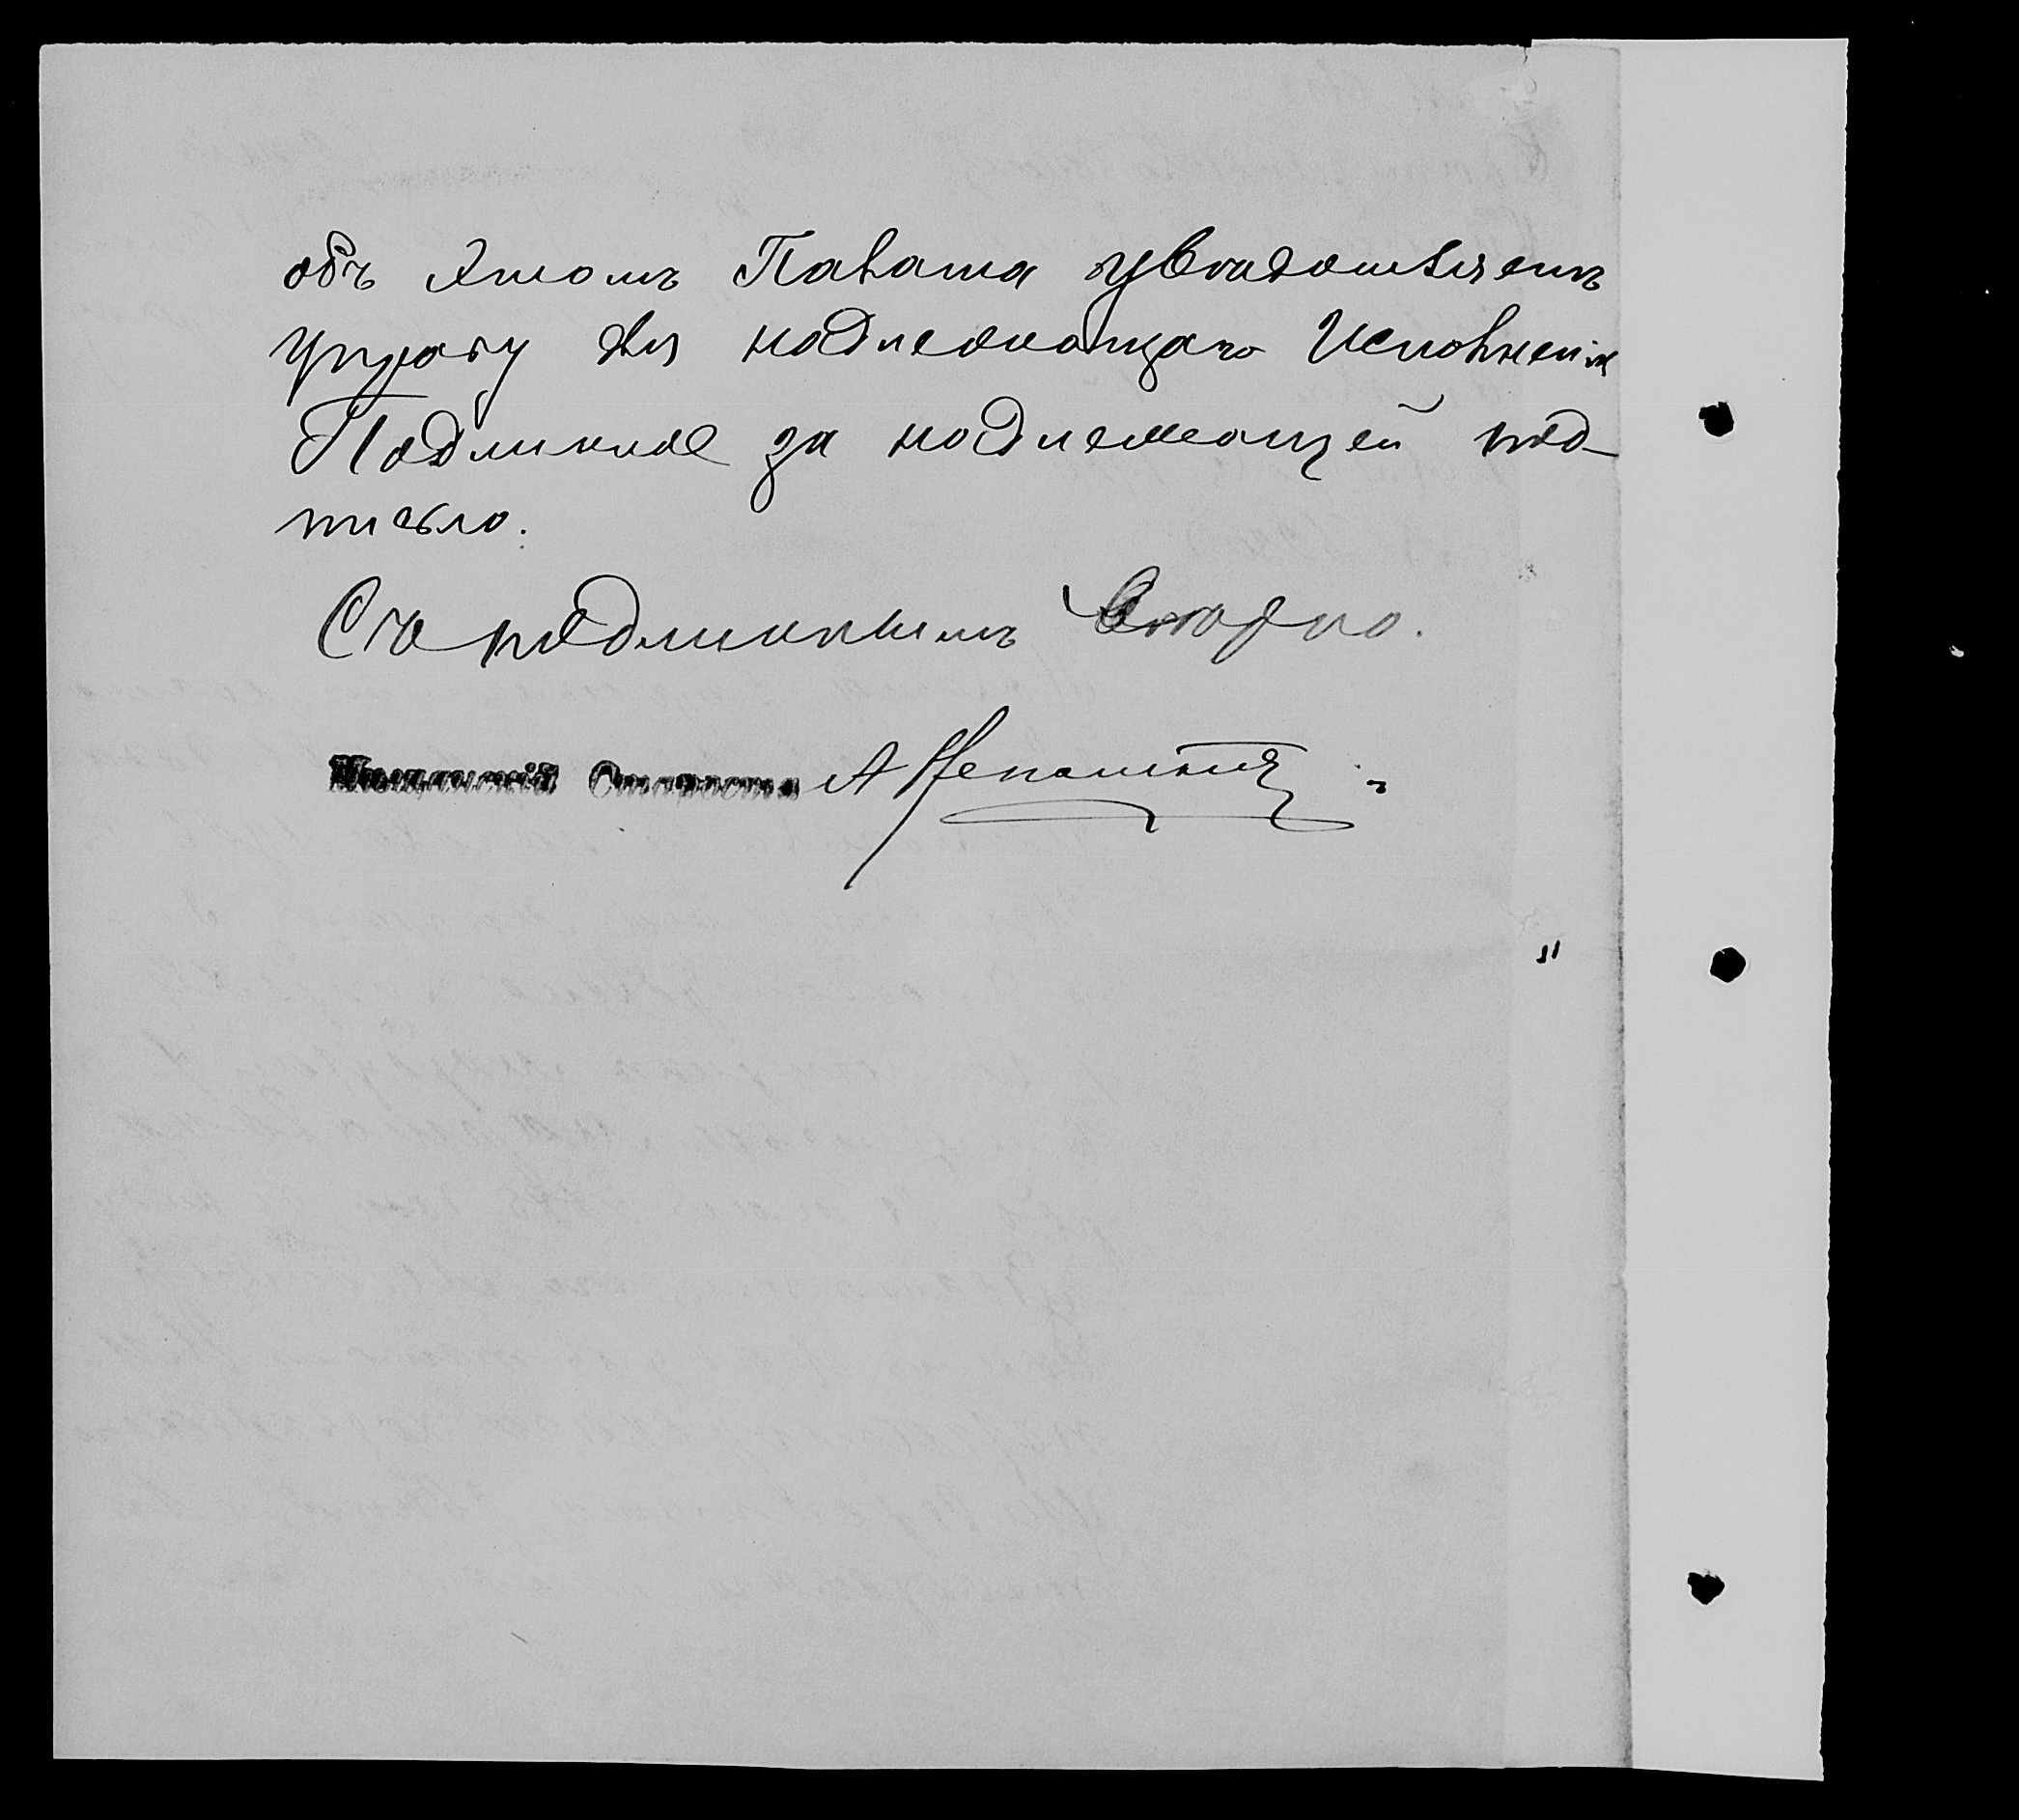 объ этомъ Палата увѣдомляетъ
управу для надлежащаго Исполненія
Подлинное за надлежащей под-
писью.
Съ подлиннымъ вѣрно.
Мѣщанскій Староста А